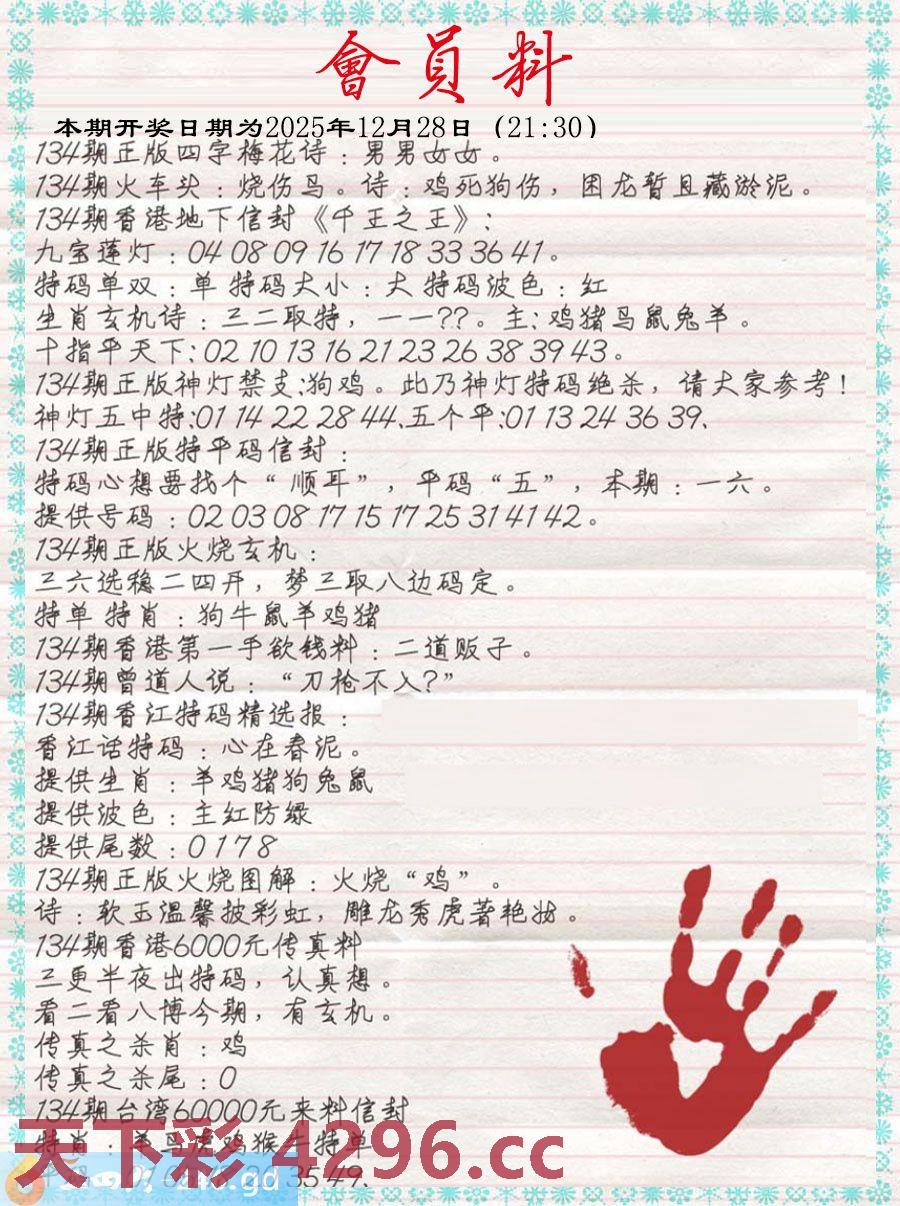 會員料
本期开奖日期为2025年12月28日（21:30）
134期正版四字梅花诗：男男女女。
134期火车头：烧伤鸟。诗：鸡死狗伤，困龙暂且藏淤泥。
134期香港地下信封《千王之王》：
九宝莲灯：04 08 09 16 17 18 33 36 41。
特码单双：单 特码大小：大 特码波色：红
生肖玄机诗：三二取特，一一??。主：鸡猪马鼠兔羊。
十指平天下：02 10 13 16 21 23 26 38 39 43。
134期正版神灯禁支：狗鸡。此乃神灯特码绝杀，请大家参考！
神灯五中特：01 14 22 28 44、五个平：01 13 24 36 39、
134期正版特平码信封：
特码心想要找个“顺耳”，平码“五”，本期：一六。
提供号码：02 03 08 17 15 17 25 31 41 42。
134期正版火烧玄机：
三六选稳二四开，梦三取八边码定。
特单 特肖：狗牛鼠羊鸡猪
134期香港第一手欲钱料：二道贩子。
134期曾道人说：“刀枪不入?”
134期香江特码精选报：
香江话特码：心在春泥。
提供生肖：羊鸡猪狗兔鼠
提供波色：主红防绿
提供尾数：0 1 7 8
134期正版火烧图解：火烧“鸡”。
诗：软玉温馨披彩虹，雕龙秀虎著艳妆。
134期香港6000元传真料
三更半夜出特码，认真想。
看二看八博今期，有玄机。
传真之杀肖：鸡
传真之杀尾：0
134期台湾60000元来料信封
特肖：羊马虎鸡猴牛特单
天下彩 4296.cc
35 49、